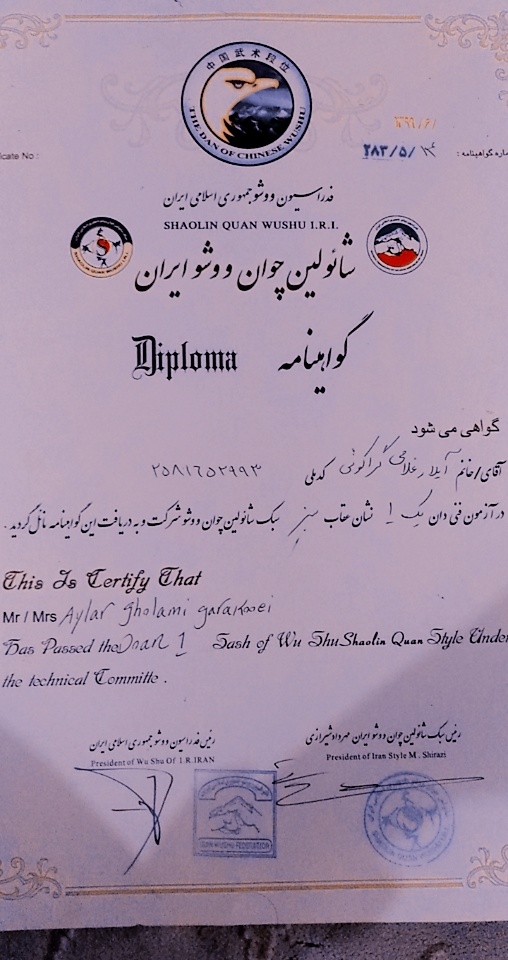 中国武术段位
THE DAN OF CHINESE WUSHU
cate No :
۲۸۳/۵/
اره گواهینامه :
فدراسیون ووشو جمهوری اسلامی ایران
SHAOLIN QUAN WUSHU I.R.I.
شائولین چوان ووشو ایران
Diploma گواهینامه
گواهی می شود
آقای/خانم آیلار غلامی گراکوئی کدملی
در آزمون فنی دان یک 1 نشان عقاب سبز سبک شائولین چوان ووشو شرکت و به دریافت این گواهینامه نائل گردید .
This Is Certify That
Mr / Mrs Aylar gholami garakoei
Has Passed the Doan 1 Sash of Wu Shu Shaolin Quan Style Under
the technical Committe .
رئیس فدراسیون ووشو جمهوری اسلامی ایران
President of Wu Shu Of I.R.IRAN
رئیس سبک شائولین چوان ووشو ایران مهرداد شیرازی
President of Iran Style M . Shirazi
IRAN WUSHU FEDERATION